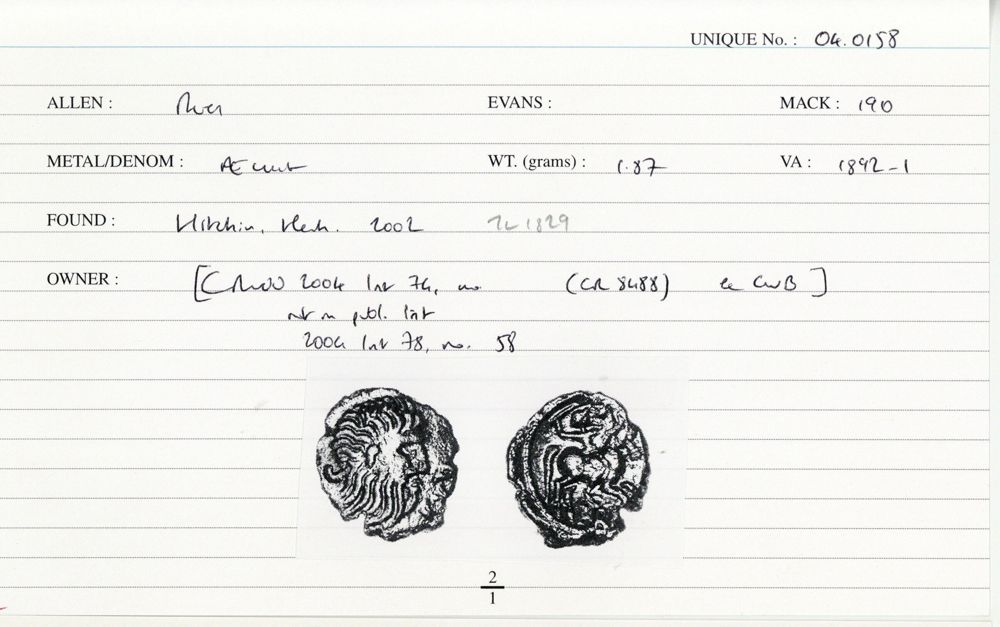 UNIQUE No. : 04.0158
ALLEN : EVANS : MACK : 190
METAL/DENOM : Æ unit WT. (grams) : 1.87 VA : 1892-1
FOUND : Hitchin, Herts. 2002 TL 1829
OWNER : [ 2004 list 74, no. (CR 8488) ex CWB ]
not in publ. list
2004 list 78, no. 58
2
1